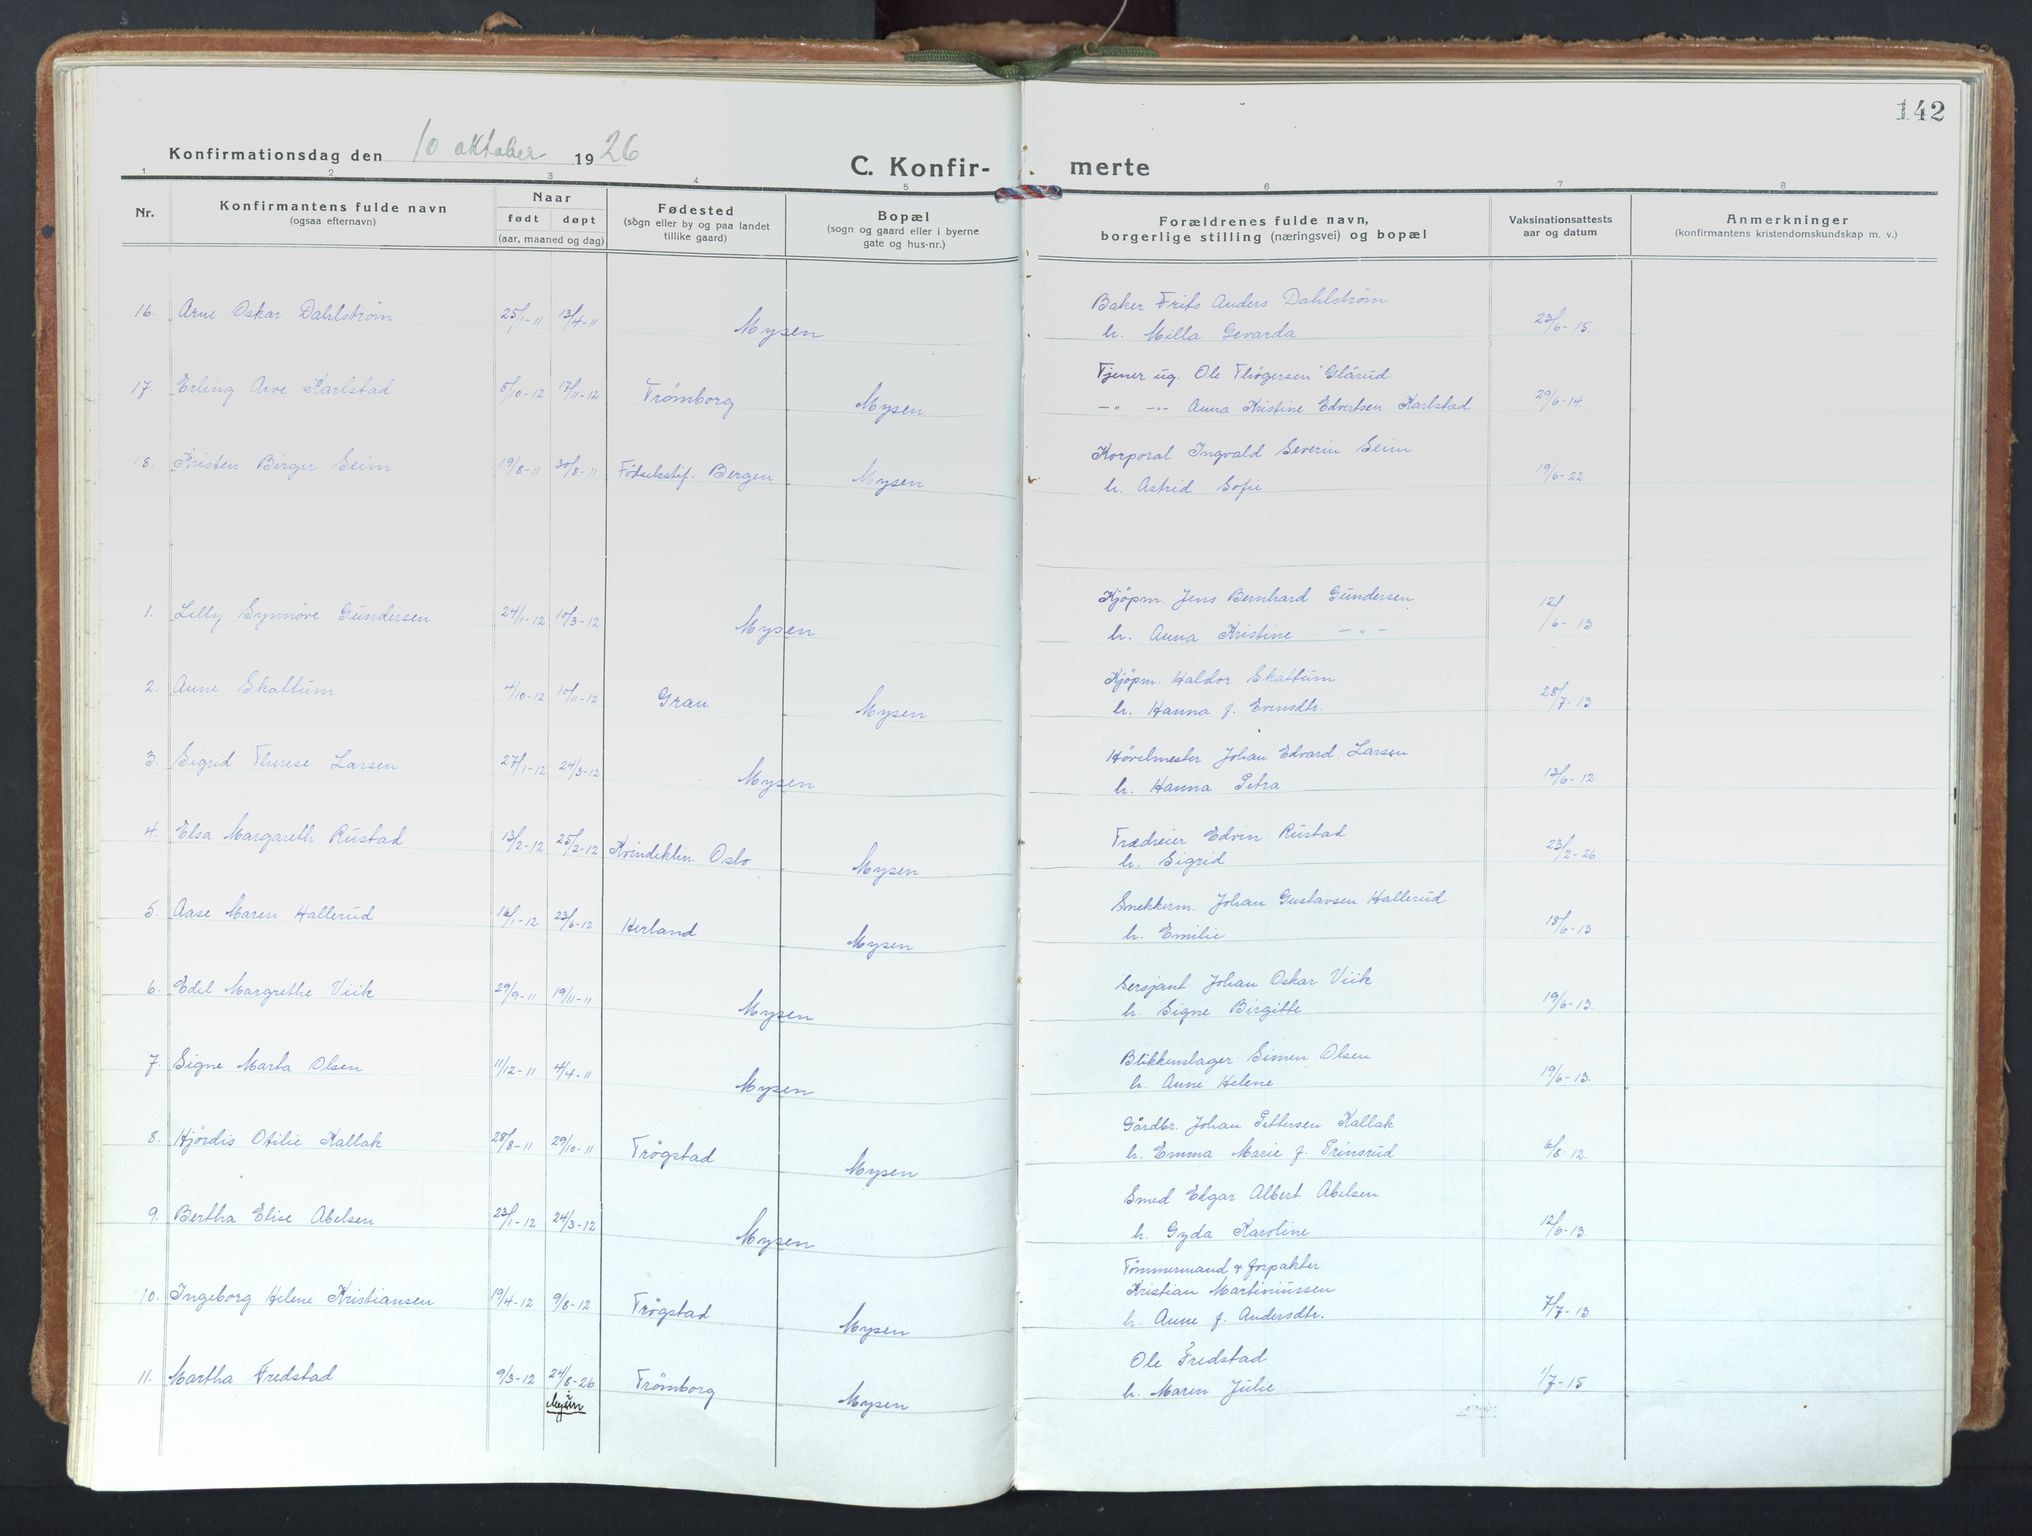 142
Konfirmationsdag den 10 oktober 1926
C. Konfir- merte
1 2 3 4 5 6 7 8
Nr.
Konfirmantens fulde navn
(ogsaa efternavn)
Naar
født døpt
(aar, maaned og dag)
Fødested
(sogn eller by og paa landet
tillike gaard)
Bopæl
(sogn og gaard eller i byerne
gate og hus-nr.)
Forældrenes fulde navn,
borgerlige stilling (næringsvei) og bopæl
Vaksinationsattests
aar og datum
Anmerkninger
(konfirmantens kristendomskundskap m. v.)
16. Arne Oskar Dahlström 25/1-11 13/4-11 Mysen
Baker Frits Anders Dahlström
h. Milla Gevarda 23/6-15.
17. Erling Arve Karlstad 5/10-12 17/11-12 Trömborg Mysen
Tjener ug. Ole Thøgersen Glärud
—"— -"- Anna Kristine Edvertsen Karlstad 29/6-14.
18. Kristen Birger Seim 19/8-11 30/8-11 Fødselsstif. Bergen Mysen
Korporal Ingvald Severin Seim
h. Astrid Sofie 19/6-22
1. Lilly Synnöve Gundersen 24/1-12 10/3-12 Mysen
Kjöpm. Jens Bernhard Gundersen
h. Anna Kristine —"— 12/6-13.
2. Anne Skattum 4/10-12 10/11-12 Grau Mysen
Kjöpm. Haldor Skattum
h. Hanna f. Evensdtr. 28/7-13
3. Sigrid Therese Larsen 27/1-12 24/3-12 Mysen
Hövelmester Johan Edvard Larsen
h. Hanna Petra 13/6-12
4. Elsa Margareth Rustad 13/2-12 25/2-12 Kvindeklin. Oslo Mysen
Trædreier Edvin Rustad
h. Sigrid 23/2-26
5. Aase Maren Hallerud 16/1-12 23/6-12 Herland Mysen
Snekkerm. Johan Gustavsen Hallerud
h. Emilie 18/6-13
6. Edel Margrethe Viik 29/9-11 19/11-11 Mysen
Sersjant Johan Oskar Viik
h. Signe Birgitte 19/6-13.
7. Signe Marta Olsen 11/12-11 4/4-11 Mysen
Blikkenslager Simen Olsen
h. Anne Helene 19/6-13.
8. Hjördis Otilie Kallak 28/8-11 29/10-11 Trögstad Mysen
Gårdbr. Johan Pettersen Kallak
h. Emma Marie f. Prinsrud 6/8-12.
9. Bertha Elise Abelsen 23/1-12 24/3-12 Mysen
Smed Edgar Albert Abelsen
h. Gyda Karoline 12/6-13.
10. Ingeborg Helene Kristiansen 19/4-12 9/8-12 Trögstad Mysen
Tömmermand & forpakter
Kristian Martiniussen
h. Anne f. Andersdtr. 7/7-13
11. Martha Fredstad 9/3-12 24/8-26 Trömborg Mysen
i Mysen
Ole Fredstad
h. Maren Julie 1/7-15